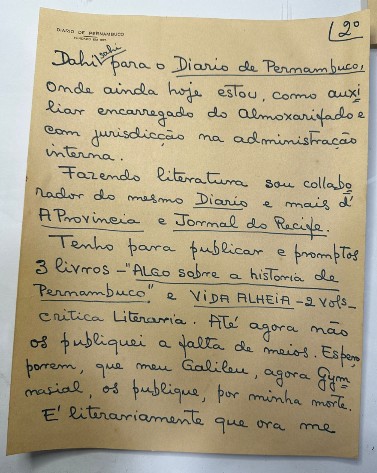 DIARIO DE PERNAMBUCO
2º
Dahi sahi para o Diario de Pernambuco,
onde ainda hoje estou, como auxi
liar encarregado do almoxarifado e
com jurisdicção na administração
interna.
Fazendo literatura sou collabo
rador do mesmo Diario e mais d'
A Provincia e Jornal do Recife.
Tenho para publicar e promptos
3 livros - "ALGO sobre a historia de
Pernambuco" e VIDA ALHEIA - 2 vols -
critica Literaria. Até agora não
os publiquei a falta de meios. Espero
porem, que meu Galileu, agora Gym-
nasial, os publique, por minha morte.
E' literariamente que ora me